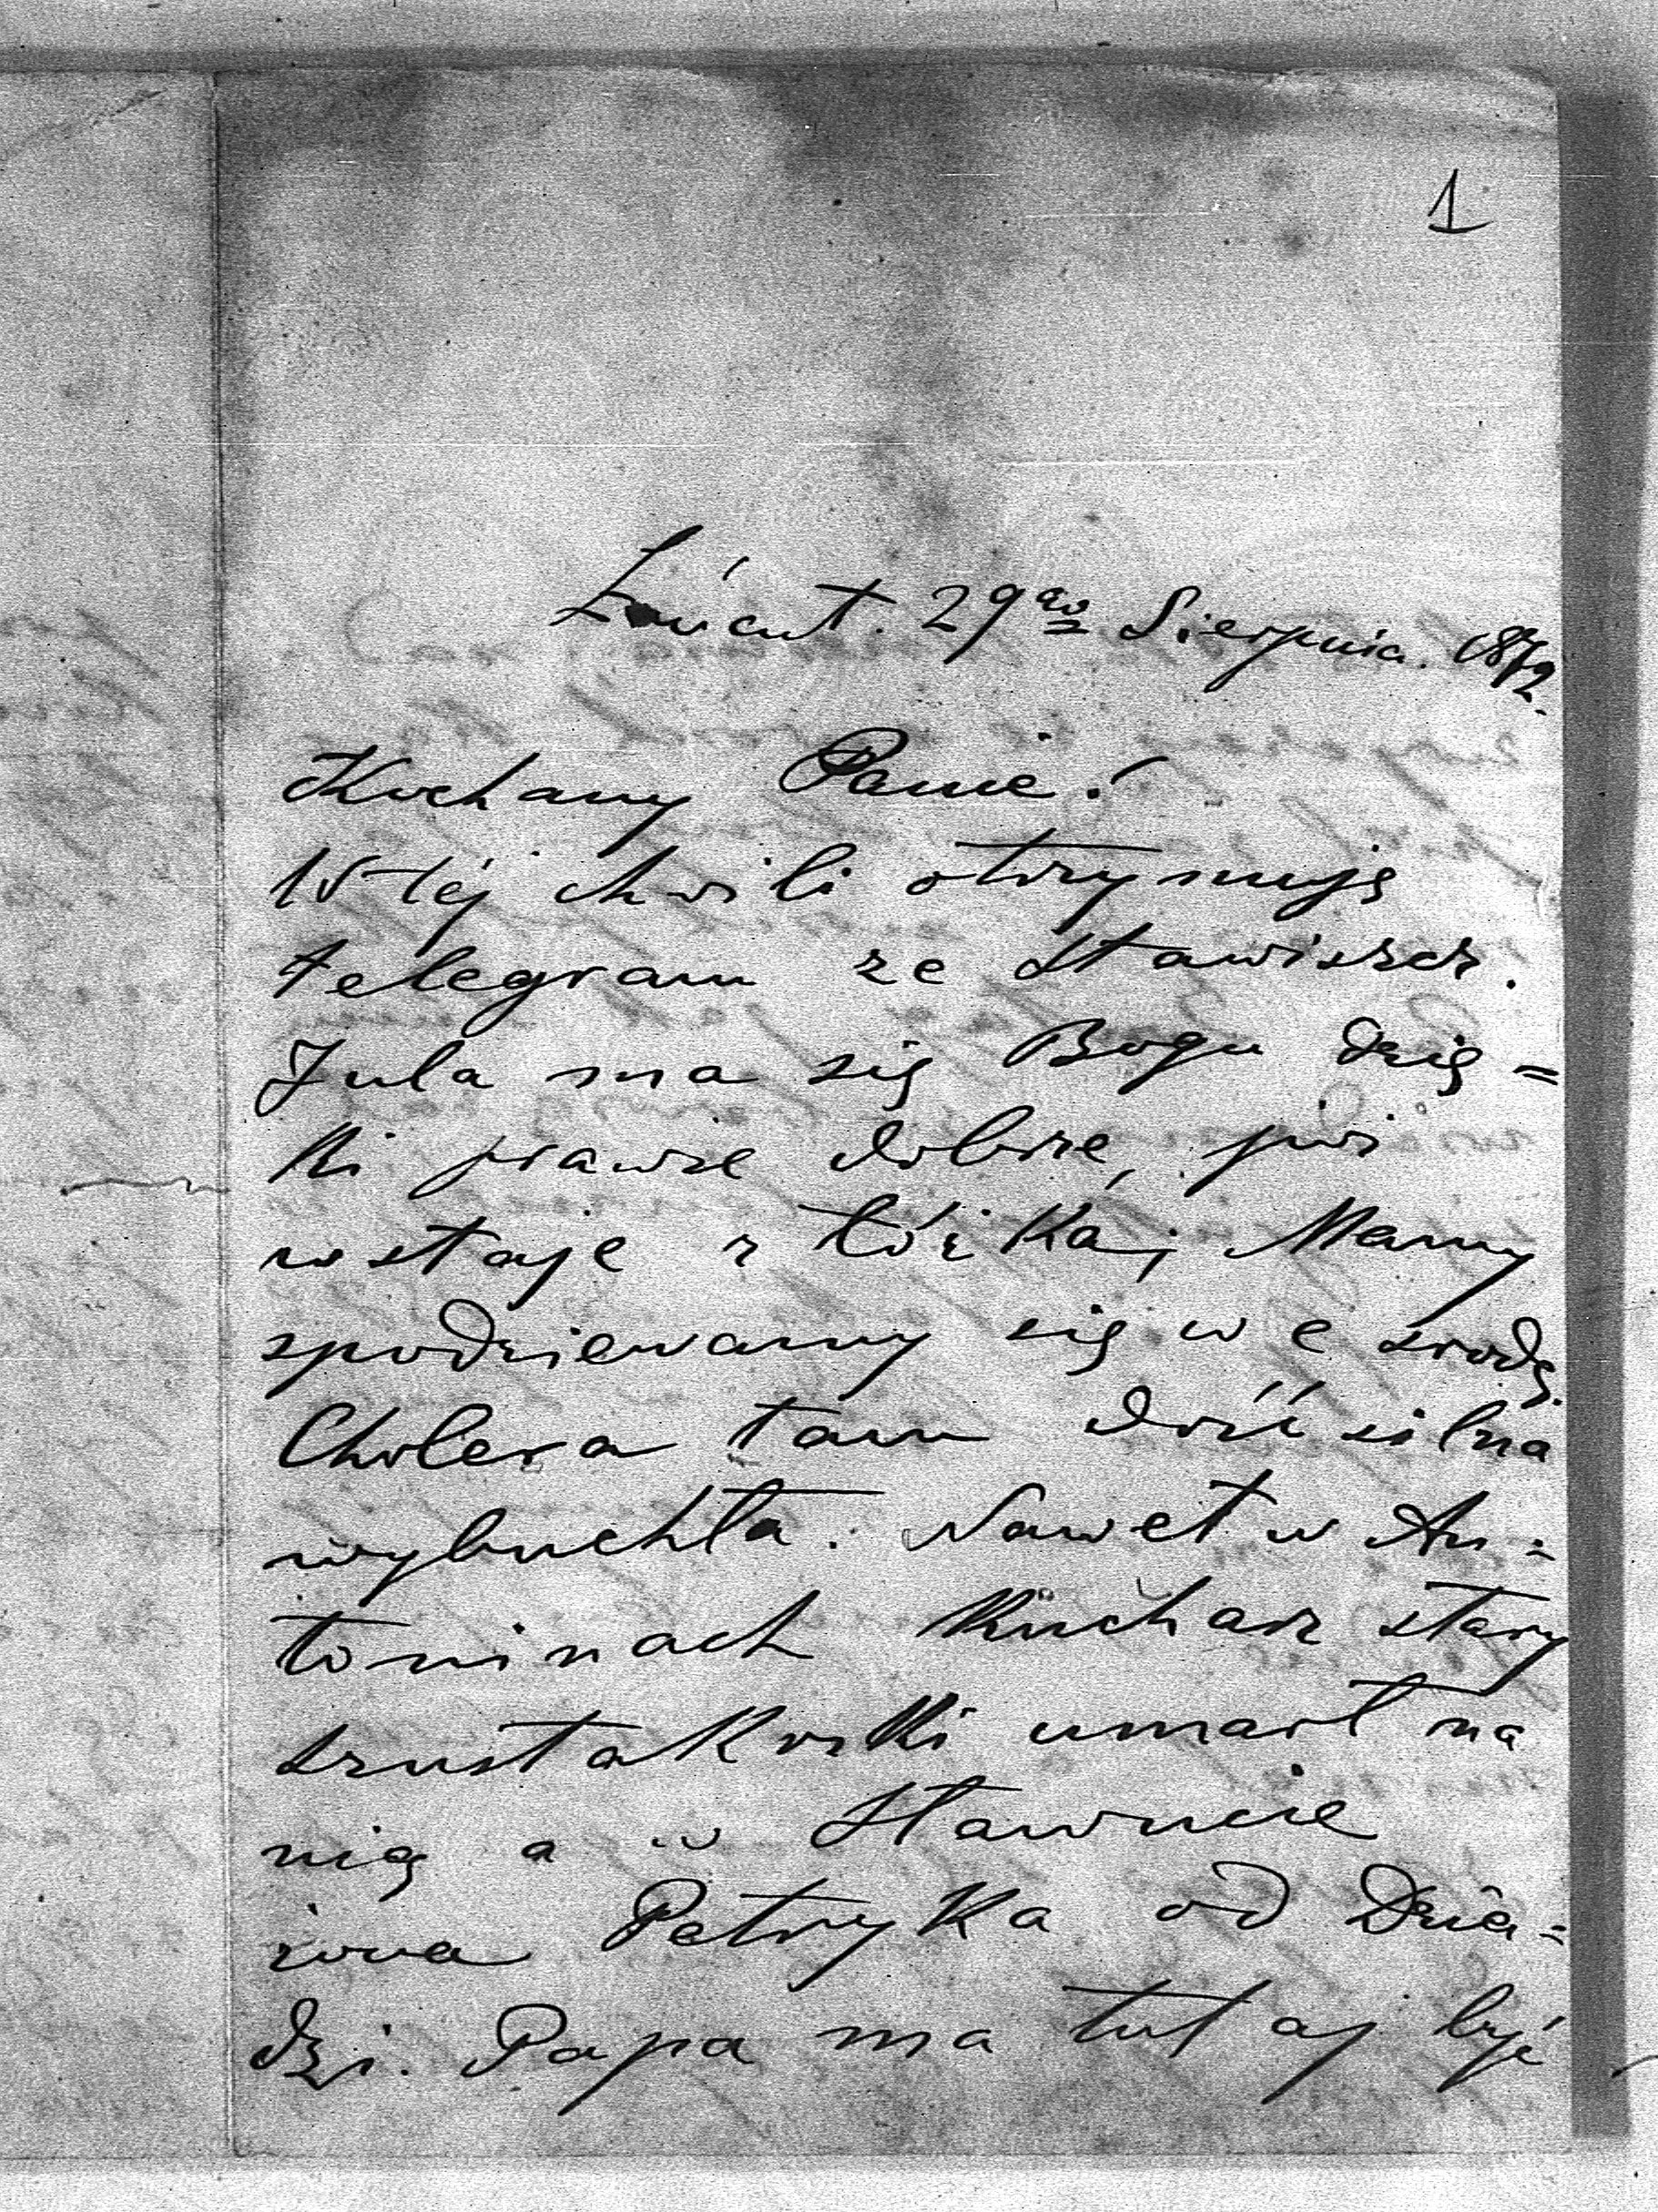 1
Łańcut. 29go Sierpnia. 1872.
Kochany Panie!
W téj chwili otrzymuję
telegram ze Stawiszcz.
Jula ma się Bogu dzię=
ki prawie dobrze, już
wstaje z łóżka; Mamy
spodziewamy się we srodę.
Cholera tam dość silna
wybuchła. Nawet w An=
toninach Kucharz stary
szustakoski umarł na
nią a w Sławucie
żona Petryka od Dzia=
dzi. Papa ma tutaj być